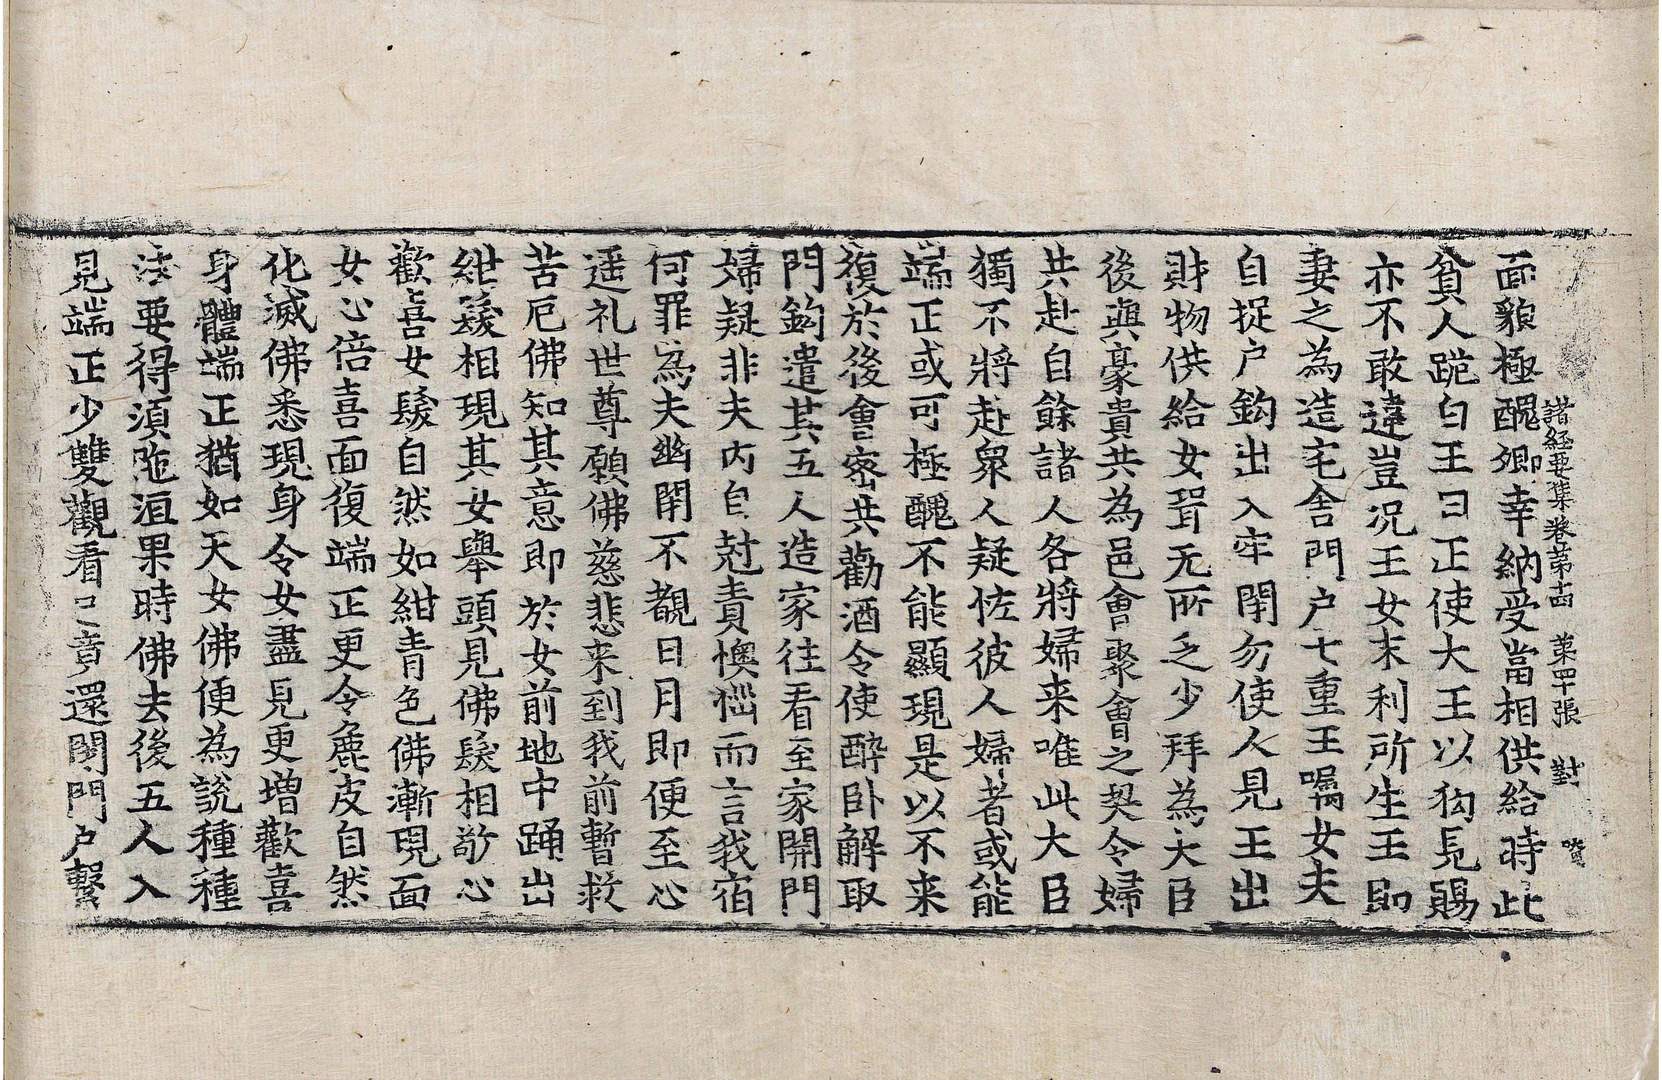 諸經要集卷第十四 第四十張 對
面貌極醜卿幸納受當相供給時此
貧人跪白王曰正使大王以狗見賜
亦不敢違豈況王女末利所生王即
妻之為造宅舍門户七重王囑女夫
自捉户鈎出入牢閇勿使人見王出
財物供給女壻无所乏少拜為大臣
後與豪貴共為邑會聚會之契令婦
共赴自餘諸人各將婦来唯此大臣
獨不將赴衆人疑恠彼人婦者或能
端正或可極醜不能顯現是以不来
復於後會密共勸酒令使醉卧解取
門鈎遣其五人造家往看至家開門
婦疑非夫内自剋責懊惱而言我宿
何罪為夫幽閇不覩日月即便至心
遥礼世尊願佛慈悲来到我前暫救
苦厄佛知其意即於女前地中踊出
紺髮相現其女舉頭見佛髮相敬心
歡喜女髮自然如紺青色佛漸現面
女心倍喜面復端正更令麁皮自然
化滅佛悉現身令女盡見更增歡喜
身體端正猶如天女佛便為説種種
法要得須陁洹果時佛去後五人入
見端正少雙觀看已竟還閇門户繫